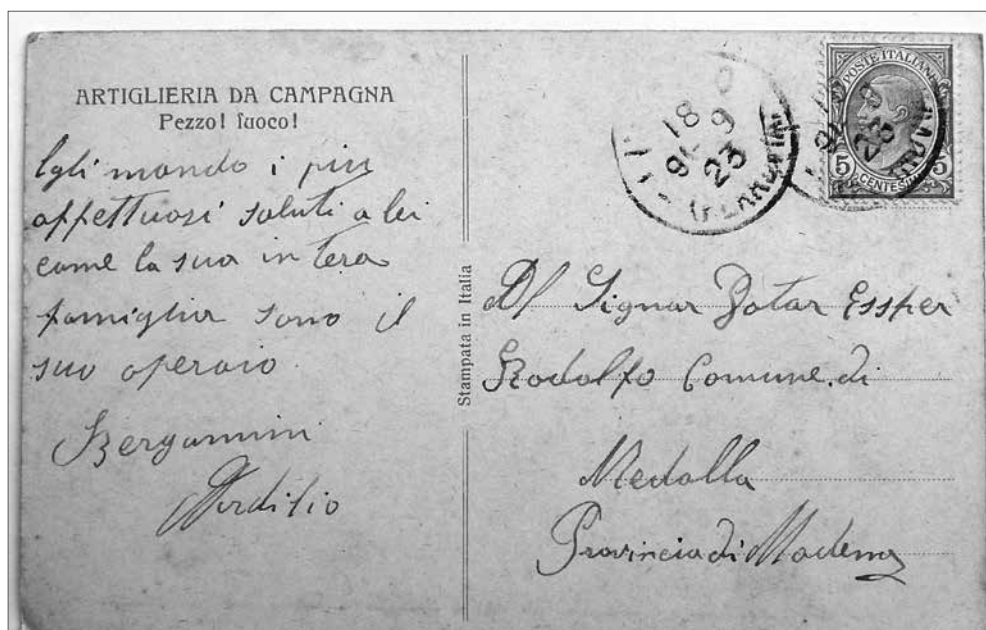 ARTIGLIERIA DA CAMPAGNA
Pezzo! fuoco!
Egli mando i piu
affettuosi saluti a lei
come la sua intera
famiglia sono il
suo operaio
Bergamini
Stampata in Italia
POSTE ITALIANE
5 CENTESIMI 5
18
9
23
Al Signor Dotar Essper
Rodolfo Comune di
Medolla
Provincia di Modena